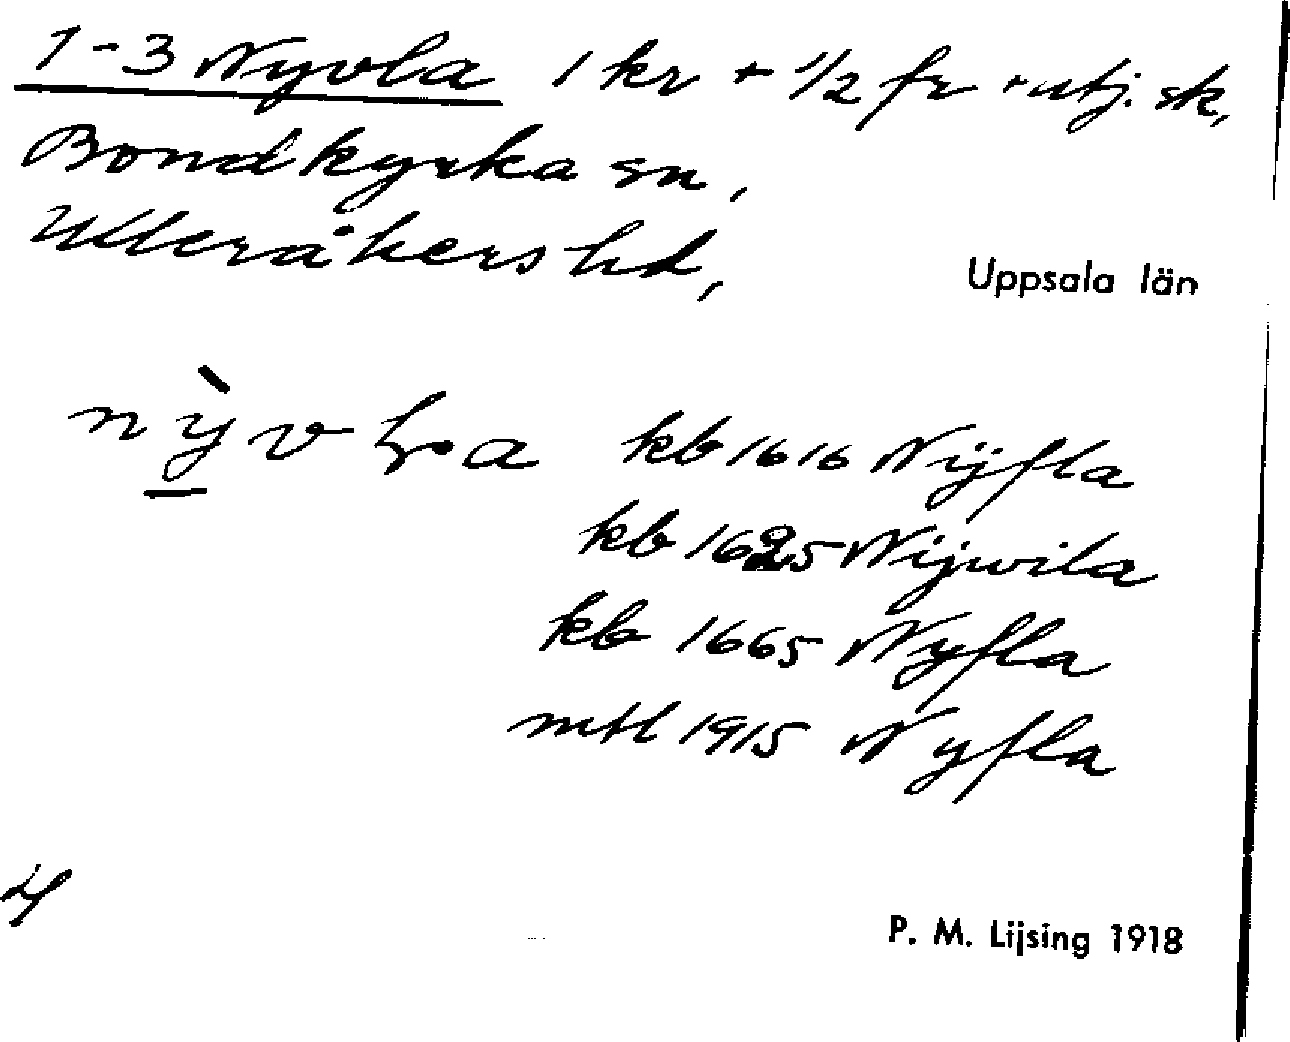 1-3 Nyvla 1 kr + 1/2 fr + utj. sk,
Bondkyrka sn,
Ulleråkers hd,
Uppsala län
kb 1616 Nijfla
kb 1625 Nijwila
kb 1665 Nyfla
mtl 1915 Nyfla
P. M. Lijsing 1918